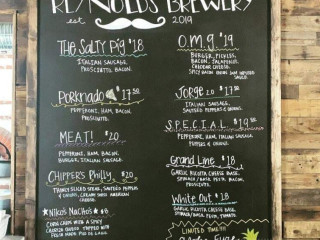 REYNOLDS BREWERY
est 2019
THE SALTY PIG $18
ITALIAN SAUSAGE,
PROSCIUTTO, BACON.
PORKNADO $17.50
PEPPERONI, HAM, BACON,
PROSCIUTTO.
MEAT! $20
PEPPERONI, HAM, BACON,
BURGER, ITALIAN SAUSAGE.
CHIPPER'S PHILLY $20
THINLY SLICED STEAK, SAUTÉED PEPPERS
& ONIONS, CREAMY AMERICAN
CHEESE.
★ NIKO'S NACHOS ★ $8
CORN CHIPS WITH A SPICY
CHORIZO QUESO TOPPED WITH
O.M.G $19
BURGER, PICKLES,
BACON, JALAPEÑO,
CHEDDAR CHEESE.
SPICY BACON INFUSED
SAUCE.
JORGE $17.50
ITALIAN SAUSAGE,
PEPPERS & ONIONS.
SPECIAL $19.50
PEPPERONI, HAM, ITALIAN SAUSAGE,
PEPPERS & ONIONS.
GRAND LINE $18
GARLIC RICOTTA CHEESE BASE,
SPINACH/BASIL, FETA, BACON,
PROSCIUTTO.
WHITE OUT $18
GARLIC RICOTTA CHEESE BASE,
SPINACH/BASIL, FETA, TOMATO.
LIMITED TIME!!!